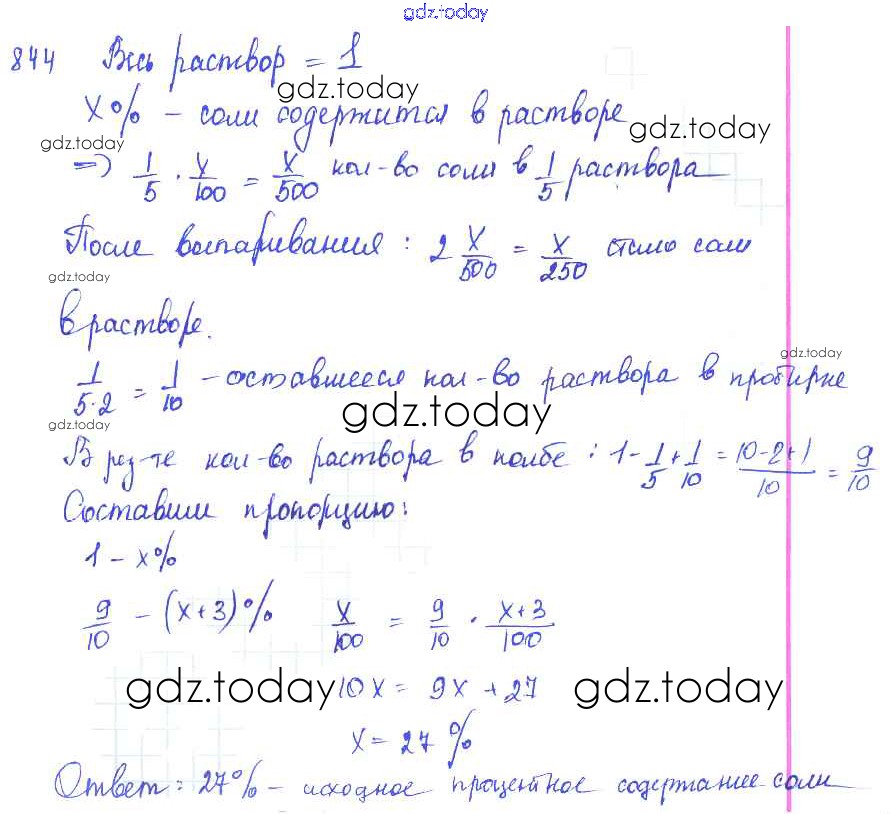 gdz.today
844 Весь раствор = 1
gdz.today
x% – соли содержится в растворе
gdz.today
gdz.today
=> 1/5 · x/100 = x/500 кол-во соли в 1/5 раствора
После выпаривания : 2 x/500 = x/250 стало соли
gdz.today
в растворе.
gdz.today
1/5·2 = 1/10 – оставшееся кол-во раствора в пробирке
gdz.today
gdz.today
В рез-те кол-во раствора в колбе : 1 - 1/5 + 1/10 = 10-2+1/10 = 9/10
Составим пропорцию:
1 – x%
9/10 – (x+3)% x/100 = 9/10 · x+3/100
gdz.today 10x = 9x + 27 gdz.today
x = 27 %
Ответ: 27% – исходное процентное содержание соли